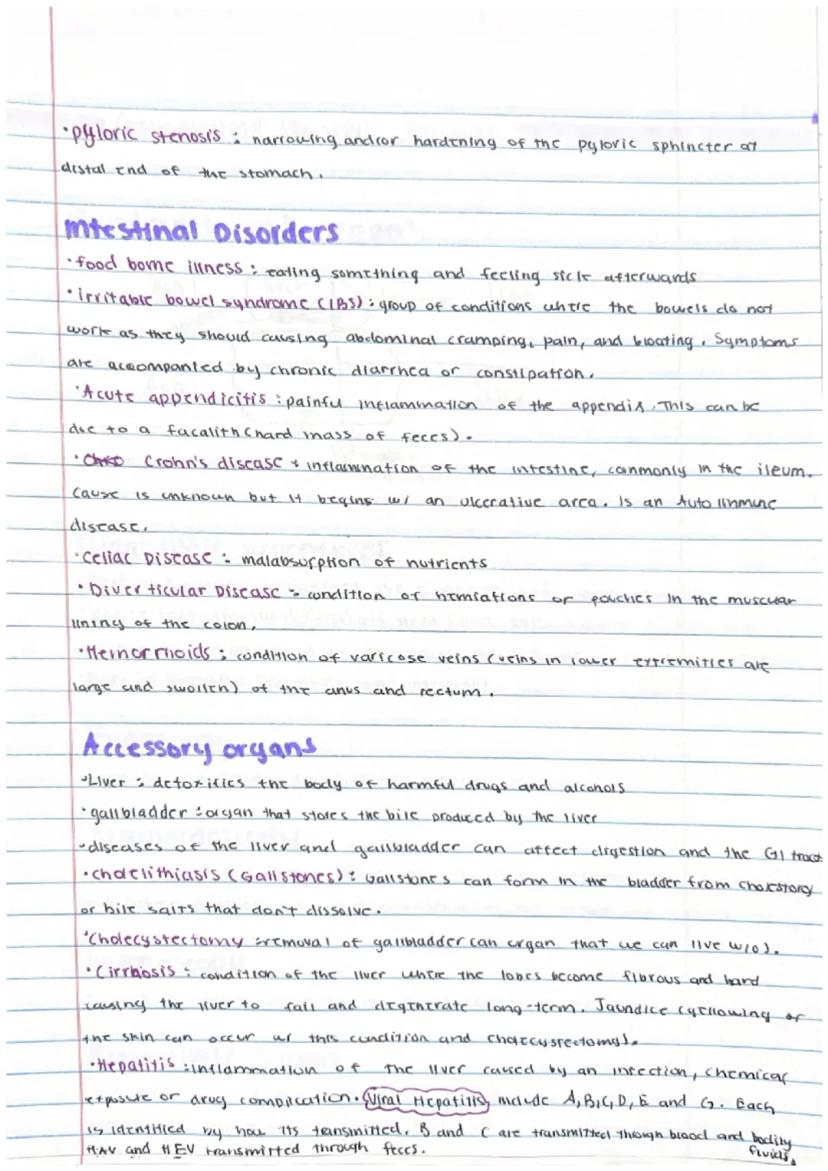 ·pyloric stenosis : narrowing and/or hardening of the pyloric sphincter at
distal end of the stomach.
Intestinal Disorders
·food borne illness : eating something and feeling sick afterwards
·irritable bowel syndrome (IBS) : group of conditions where the bowels do not
work as they should causing abdominal cramping, pain, and bloating. Symptoms
are accompanied by chronic diarrhea or constipation.
·Acute appendicitis : painful inflammation of the appendix. This can be
due to a facalith (hard mass of feces).
· Crohn's disease : inflammation of the intestine, commonly in the ileum.
Cause is unknown but it begins w/ an ulcerative area. Is an Auto immune
disease.
·Celiac Disease : malabsorption of nutrients
·Diverticular Disease : condition of herniations or pouches in the muscular
lining of the colon.
·Hemorrhoids : condition of varicose veins (veins in lower extremities are
large and swollen) of the anus and rectum.
Accessory organs
·Liver : detoxifies the body of harmful drugs and alcohols
·gallbladder : organ that stores the bile produced by the liver
·diseases of the liver and gallbladder can affect digestion and the GI tract
·cholelithiasis (Gallstones) : Gallstones can form in the bladder from
or bile salts that don't dissolve.
·Cholecystectomy : removal of gallbladder (an organ that we can live w/o).
·Cirrhosis : condition of the liver where the lobes become fibrous and hard
causing the liver to fail and degenerate long-term. Jaundice (yellowing of
the skin can occur w/ this condition and
·Hepatitis : inflammation of the liver caused by an infection, chemical
exposure or drug complication. Viral Hepatitis include A, B, C, D, E and G. Each
is identified by how its transmitted. B and C are transmitted through blood and bodily
fluids.
HAV and HEV transmitted through feces.